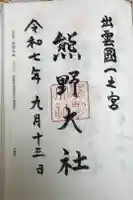 出雲國一之宮
熊野大社
令和七年九月十三日